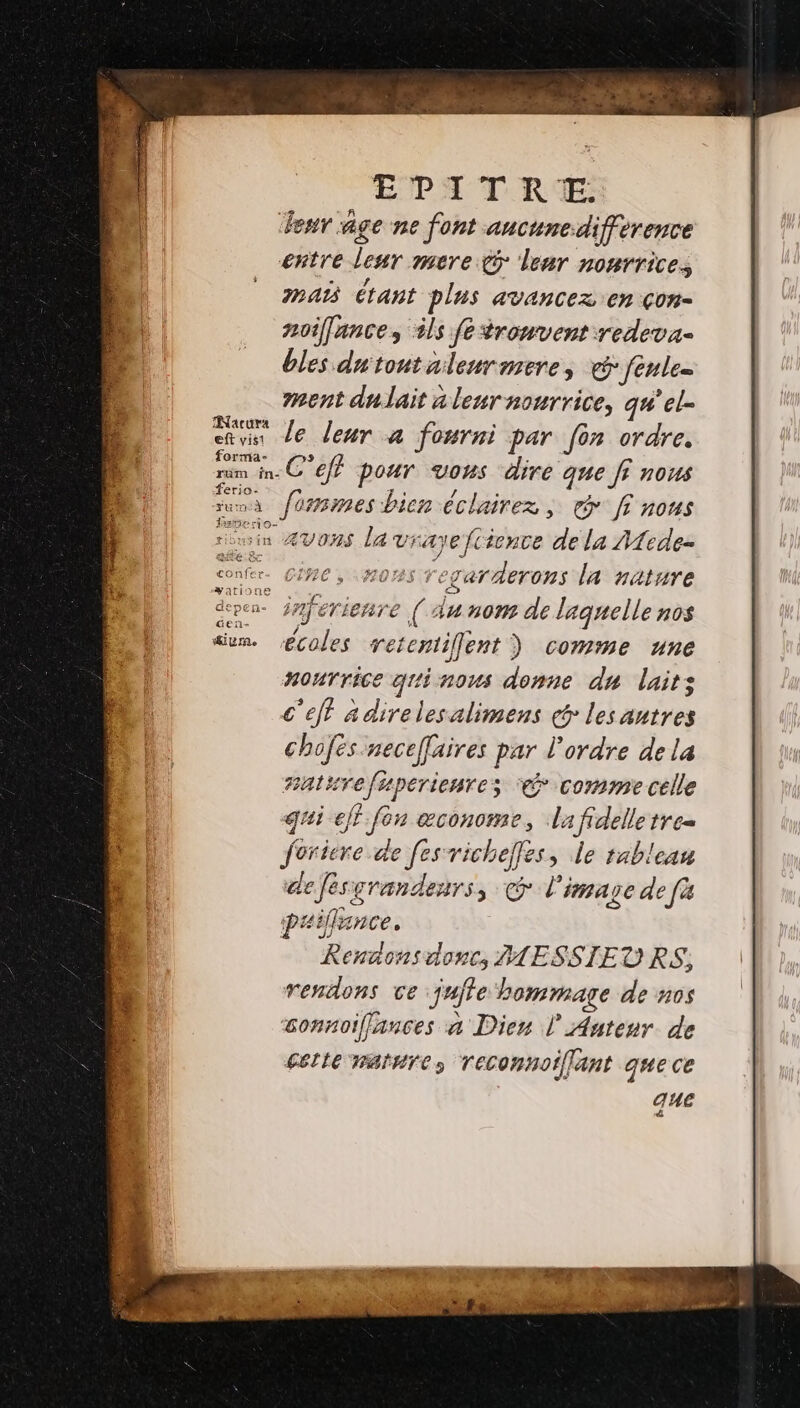 EPITRE.
leur âge ne font aucune difference
entre leur mere & leur nourrice,
mais étant plus avancez en con-
noiſſance, ils ſe trouvent redeva-
bles du tout à leur mere, & ſeule-
ment du lait à leur nourrice, qu'el-
le leur a fourni par ſon ordre.
C'eſt pour vous dire que ſi nous
ſommes bien éclairez, & ſi nous
avons la vraye ſcience de la Mede-
cine, nous regarderons la nature
inferieure (du nom de laquelle nos
écoles retentiſſent) comme une
nourrice qui nous donne du lait;
c'eſt à dire les alimens & les autres
choſes neceſſaires par l'ordre de la
nature ſuperieure; & comme celle
qui eſt ſon œconome, la fidelle tre-
ſoriere de ſes richeſſes, le tableau
de ſes grandeurs, & l'image de ſa
puiſſance.
Rendons donc, MESSIEURS,
rendons ce juſte hommage de nos
connoiſſances à Dieu l'Auteur de
cette nature, reconnoiſſant que ce
que
Natura
eſt vis
forma-
rum in-
ferio-
rum à
ſuperio-
ribus in
eſſe &
conſer-
vatione
depen-
den-
tium.